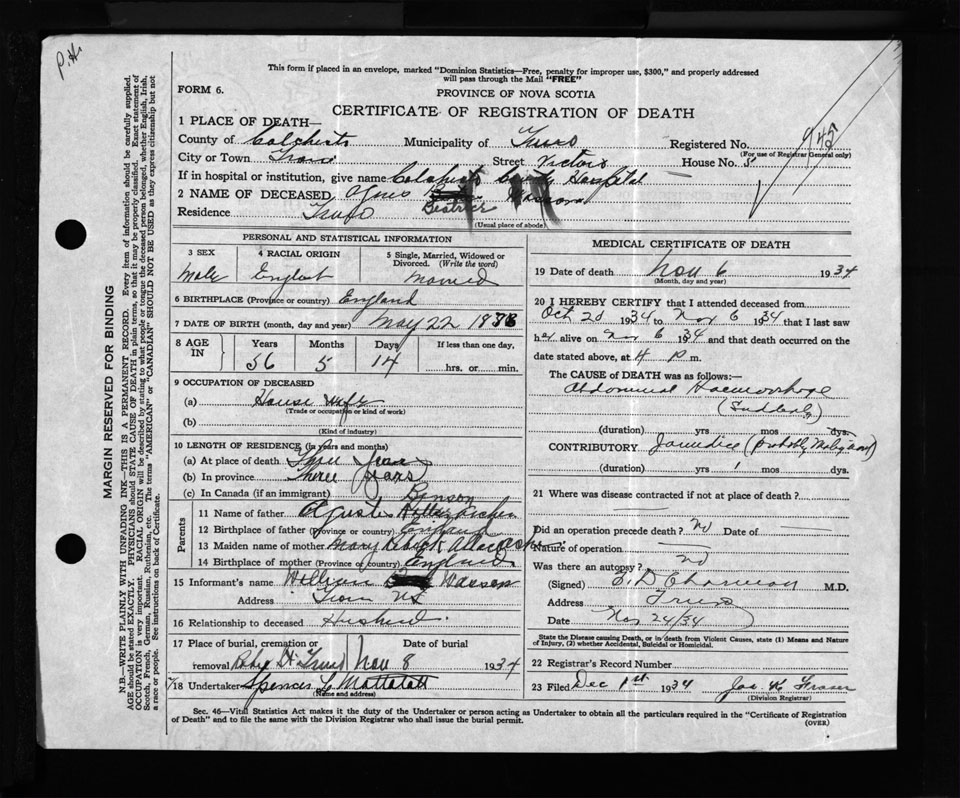 P.H.
This form if placed in an envelope, marked "Dominion Statistics—Free, penalty for improper use, $300," and properly addressed
will pass through the Mail "FREE"
FORM 6.
PROVINCE OF NOVA SCOTIA
CERTIFICATE OF REGISTRATION OF DEATH
945
1 PLACE OF DEATH—
County of Colchester Municipality of Truro Registered No.
(For use of Registrar General only)
City or Town Truro Street Victoria House No.
If in hospital or institution, give name Colchester County Hospital
2 NAME OF DECEASED Beatrice
Residence Truro
(Usual place of abode)
PERSONAL AND STATISTICAL INFORMATION
3 SEX
4 RACIAL ORIGIN
5 Single, Married, Widowed or Divorced. (Write the word)
Male Married
6 BIRTHPLACE (Province or country) England
7 DATE OF BIRTH (month, day and year) May 22
8 AGE IN
Years Months Days If less than one day,
56 5 14 hrs. or min.
9 OCCUPATION OF DECEASED
(a) House wife
(Trade or occupation or kind of work)
(b)
(Kind of industry)
10 LENGTH OF RESIDENCE (in years and months)
(a) At place of death Three Years
(b) In province Three Years
(c) In Canada (if an immigrant)
Parents
11 Name of father
12 Birthplace of father (Province or country) England
13 Maiden name of mother Mary
14 Birthplace of mother (Province or country) England
15 Informant's name William
Address Truro NS
16 Relationship to deceased Husband.
17 Place of burial, cremation or removal Robie St Truro
Date of burial
Nov 8 1934
18 Undertaker Spencer
(Name and address)
MEDICAL CERTIFICATE OF DEATH
19 Date of death Nov 6 1934
(Month, day and year)
20 I HEREBY CERTIFY that I attended deceased from
Oct 20 1934 to Nov 6 1934 that I last saw
her alive on Nov 6 1934 and that death occurred on the
date stated above, at 4 P. m.
The CAUSE of DEATH was as follows:—
Abdominal Haemorrhage
(Sudden)
(duration) yrs mos dys.
CONTRIBUTORY Jaundice (probably Malignant)
(duration) yrs 1 mos. dys.
21 Where was disease contracted if not at place of death?
Did an operation precede death? No Date of
Nature of operation
Was there an autopsy? No
(Signed) M.D.
Address Truro
Date Nov 24/34
State the Disease causing Death, or in death from Violent Causes, state (1) Means and Nature
of Injury, (2) whether Accidental, Suicidal or Homicidal.
22 Registrar's Record Number
23 Filed Dec 1st 1934 Jas. K Fraser
(Division Registrar)
Sec. 46—Vital Statistics Act makes it the duty of the Undertaker or person acting as Undertaker to obtain all the particulars required in the "Certificate of Registration
of Death" and to file the same with the Division Registrar who shall issue the burial permit.
(OVER)
MARGIN RESERVED FOR BINDING
N.B.—WRITE PLAINLY WITH UNFADING INK—THIS IS A PERMANENT RECORD. Every item of information should be carefully supplied.
AGE should be stated EXACTLY. PHYSICIANS should STATE CAUSE OF DEATH in plain terms, so that it may be properly classified. Exact statement of
OCCUPATION is very important. RACIAL ORIGIN will be described by stating to what people or tongue the deceased person belonged, whether English, Irish,
Scotch, French, German, Russian, Ruthenian, etc. The terms "AMERICAN" or "CANADIAN" SHOULD NOT BE USED as they express citizenship but not
a race or people. See instructions on back of Certificate.